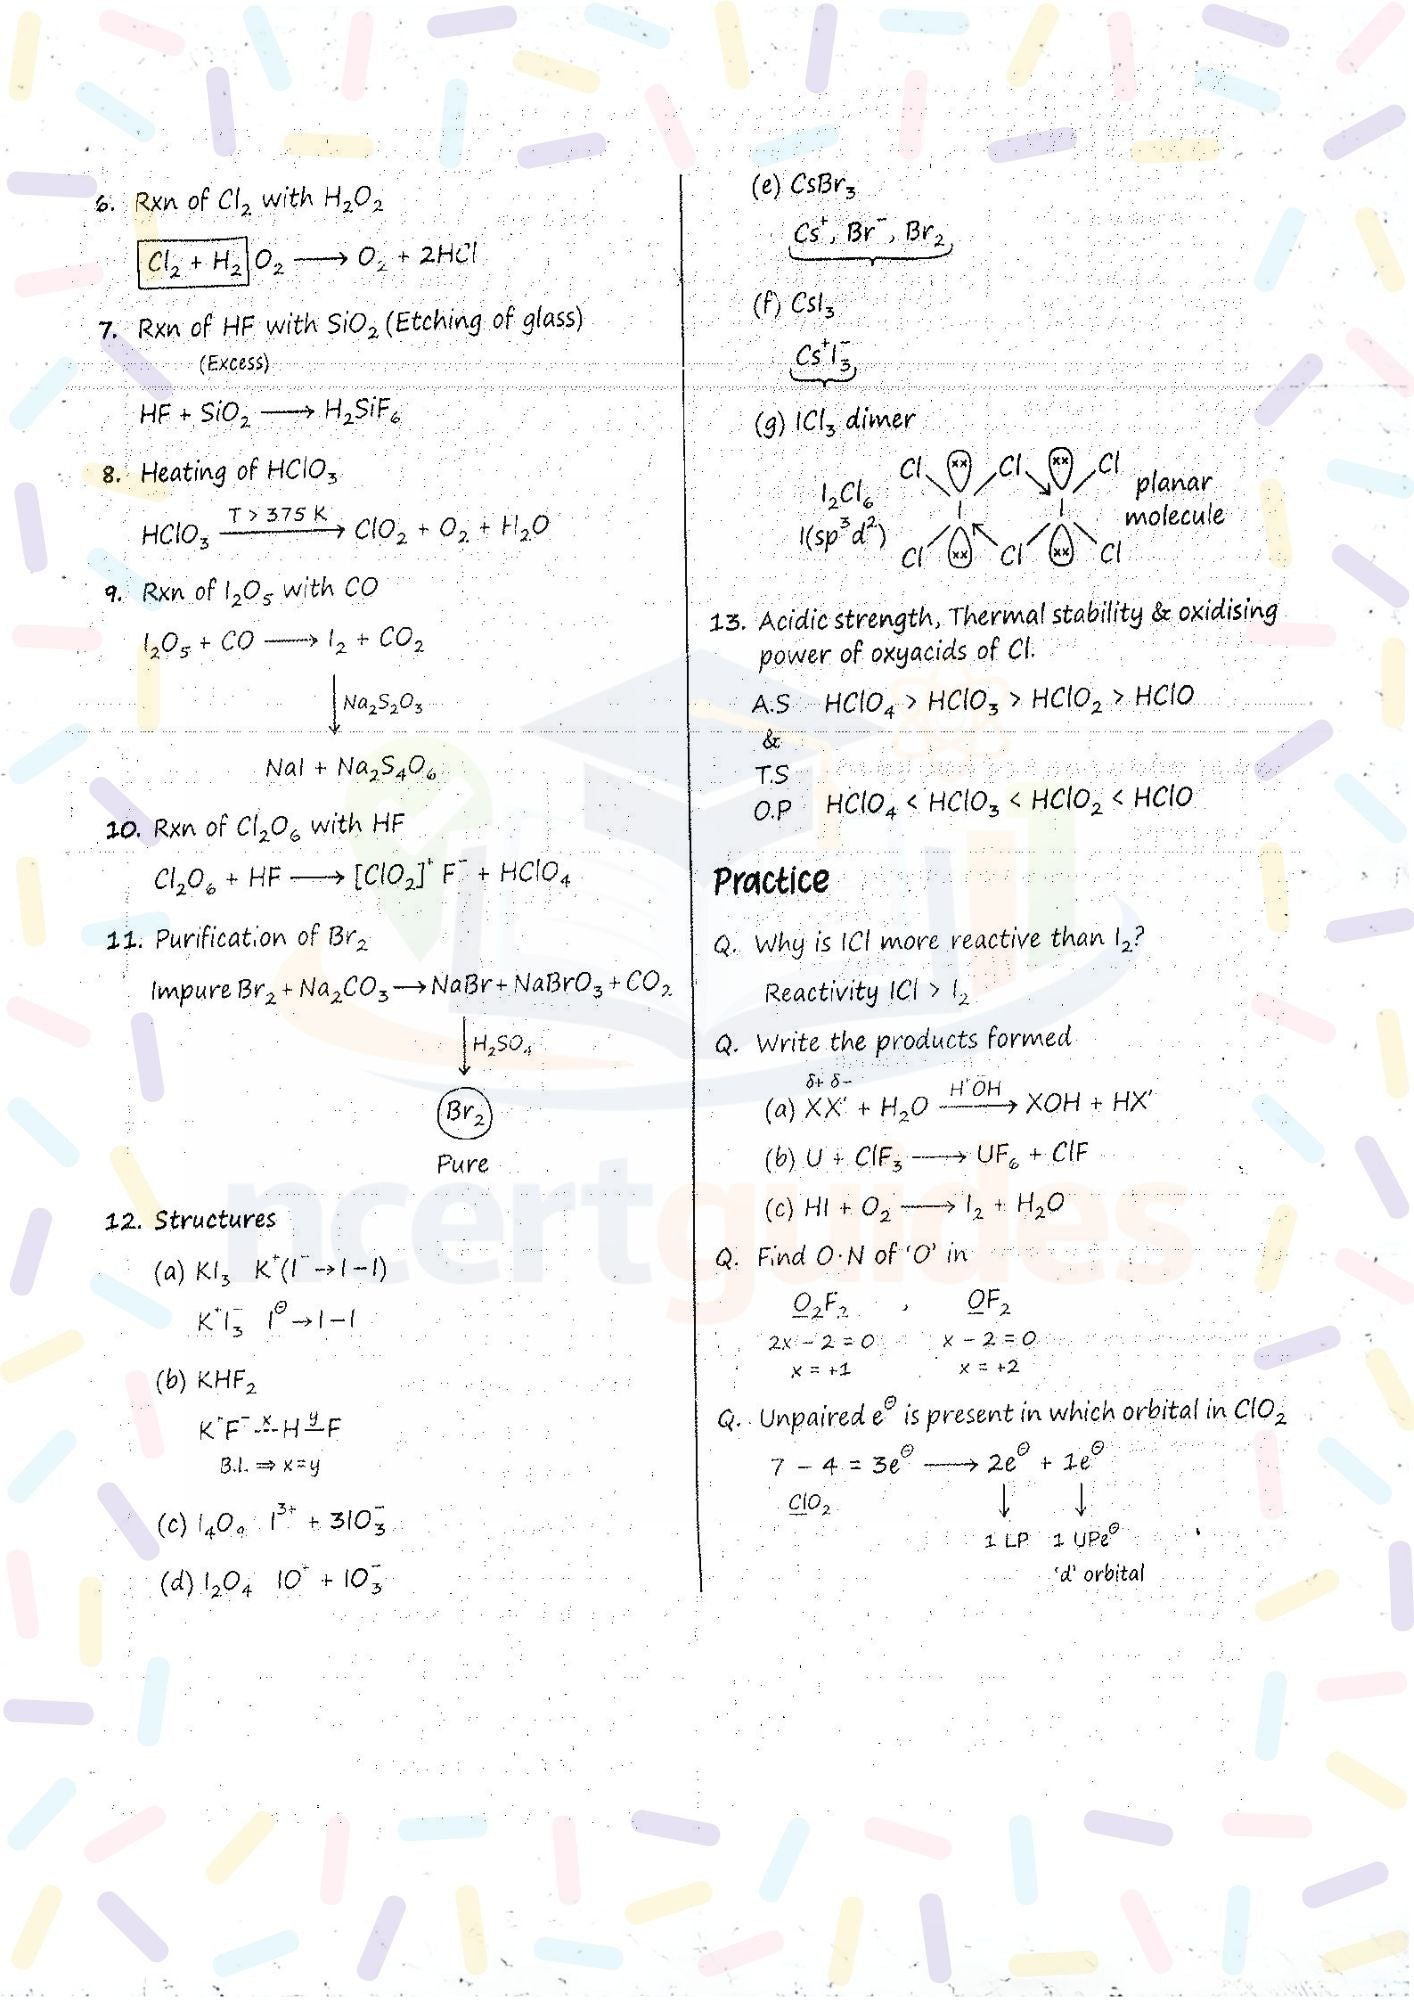 6. Rxn of Cl₂ with H₂O₂
Cl₂ + H₂ O₂ ⟶ O₂ + 2HCl
7. Rxn of HF with SiO₂ (Etching of glass)
(Excess)
HF + SiO₂ ⟶ H₂SiF₆
8. Heating of HClO₃
T > 375 K
HClO₃ ⟶ ClO₂ + O₂ + H₂O
9. Rxn of I₂O₅ with CO
I₂O₅ + CO ⟶ I₂ + CO₂
↓ Na₂S₂O₃
NaI + Na₂S₄O₆
10. Rxn of Cl₂O₆ with HF
Cl₂O₆ + HF ⟶ [ClO₂]⁺ F⁻ + HClO₄
11. Purification of Br₂
Impure Br₂ + Na₂CO₃ ⟶ NaBr + NaBrO₃ + CO₂
↓ H₂SO₄
Br₂
Pure
12. Structures
(a) KI₃ K⁺(I⁻→I–I)
K⁺I₃⁻ I⊖→I–I
(b) KHF₂
K⁺F⁻ --x-- H —y— F
B.l. ⇒ x=y
(c) I₄O₉ I³⁺ + 3IO₃⁻
(d) I₂O₄ IO⁺ + IO₃⁻
(e) CsBr₃
Cs⁺, Br⁻, Br₂
(f) CsI₃
Cs⁺I₃⁻
(g) ICl₃ dimer
Cl xx Cl xx Cl
I₂Cl₆ planar
I(sp³d²) I I molecule
Cl xx Cl xx Cl
13. Acidic strength, Thermal stability & oxidising
power of oxyacids of Cl.
A.S HClO₄ > HClO₃ > HClO₂ > HClO
&
T.S
O.P HClO₄ < HClO₃ < HClO₂ < HClO
Practice
Q. Why is ICl more reactive than I₂?
Reactivity ICl > I₂
Q. Write the products formed
δ+ δ− H⁺OH⁻
(a) XX' + H₂O ⟶ XOH + HX'
(b) U + ClF₃ ⟶ UF₆ + ClF
(c) HI + O₂ ⟶ I₂ + H₂O
Q. Find O·N of 'O' in
O₂F₂ , OF₂
2x − 2 = 0 x − 2 = 0
x = +1 x = +2
Q. Unpaired e⊖ is present in which orbital in ClO₂
7 − 4 = 3e⊖ ⟶ 2e⊖ + 1e⊖
ClO₂ ↓ ↓
1 LP 1 UPe⊖
'd' orbital
ncertguides